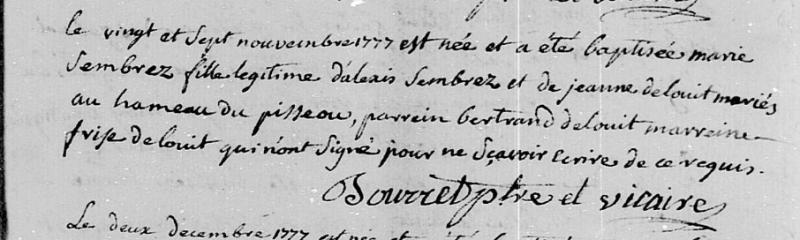 le vingt et sept nouvembre 1777 est née et a été baptisée marie
Sembrez fille legitime d'alexis Sembrez et de jeanne delouit mariés
au hameau du pisseou, parrein bertrand delouit marreine
frise delouit qui n'ont signé pour ne sçavoir ecrire de ce requis.
Bourret ptre et vicaire
Le deux decembre 1777 est née et a été